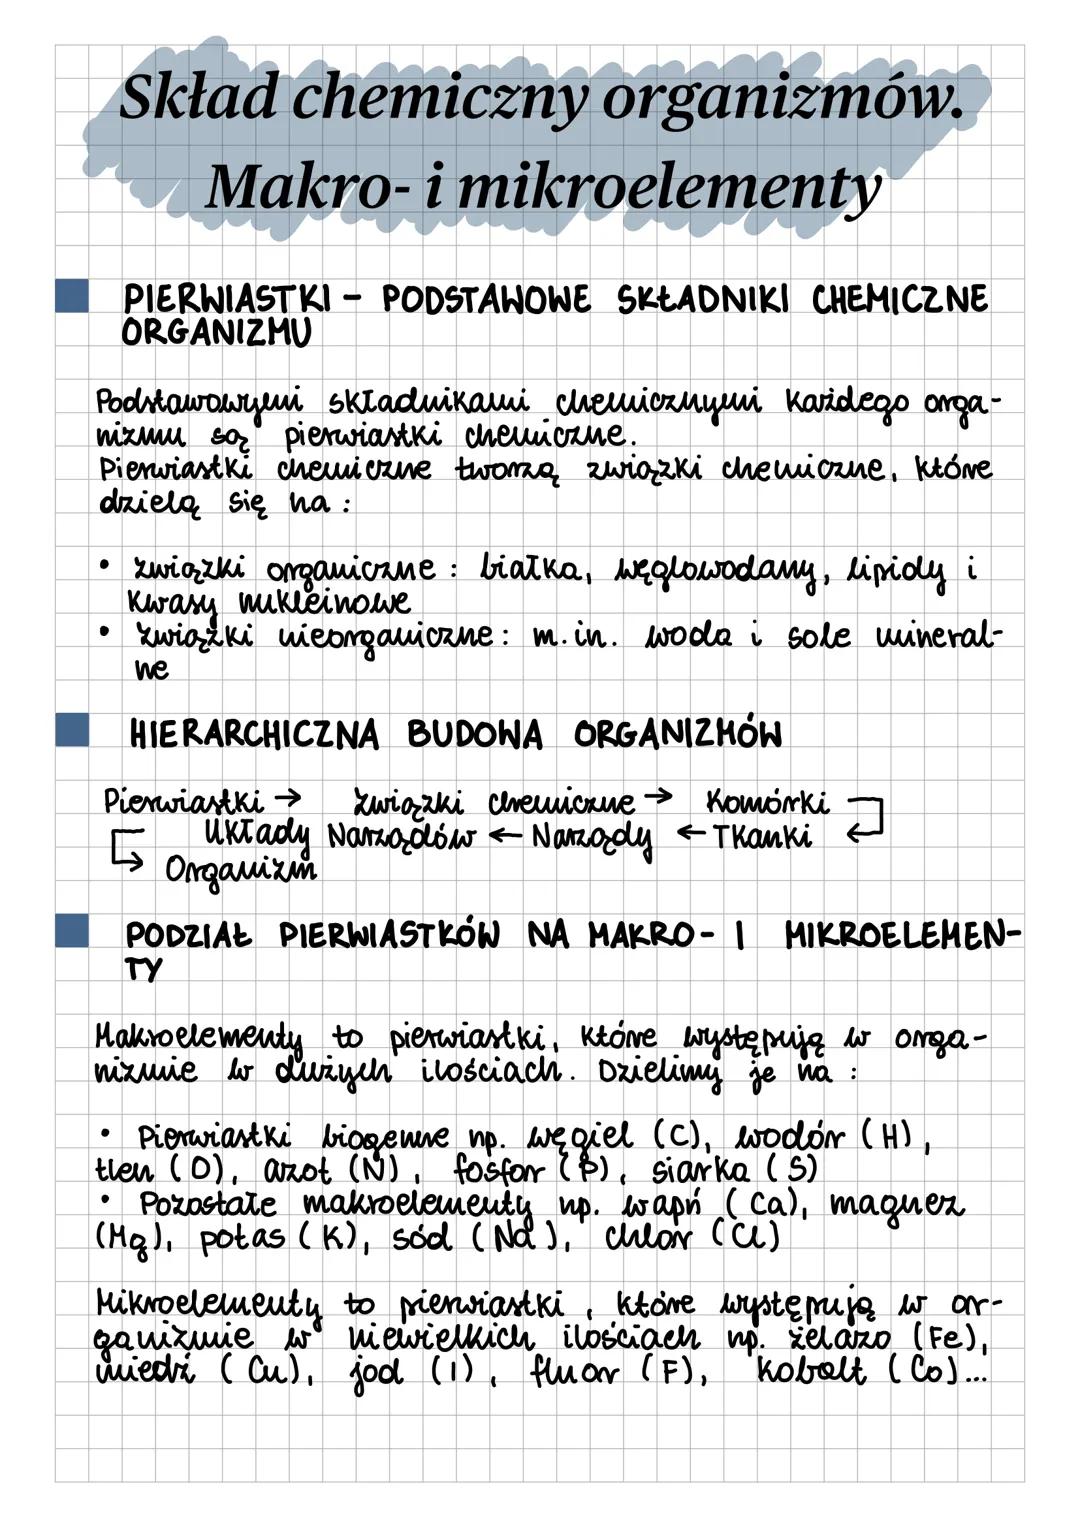 Skład chemiczny organizmów.
Makro- i mikroelementy
PIERWIASTKI - PODSTAWOWE SKŁADNIKI CHEMICZNE
ORGANIZMU
Podstawowymi składnikami chemicznymi każdego orga-
nizmu są pierwiastki chemiczne.
Pierwiastki chemiczne tworzą związki chemiczne, które
dzielą się na :
• związki organiczne : białka, węglowodany, lipidy i
kwasy nukleinowe
• związki nieorganiczne : m.in. woda i sole mineral-
ne
HIERARCHICZNA BUDOWA ORGANIZMÓW
Pierwiastki → związki chemiczne → Komórki
Układy Narządów ← Narządy ← Tkanki
Organizm
PODZIAŁ PIERWIASTKÓW NA MAKRO- I MIKROELEMEN-
TY
Makroelementy to pierwiastki, które występują w orga-
nizmie w dużych ilościach. Dzielimy je na :
• Pierwiastki biogenne np. węgiel (C), wodór (H),
tlen (O), azot (N), fosfor (P), siarka (S)
• Pozostałe makroelementy np. wapń (Ca), magnez
(Mg), potas (K), sód (Na), chlor (Cl)
Mikroelementy to pierwiastki, które występują w or-
ganizmie w niewielkich ilościach np. żelazo (Fe),
miedź (Cu), jod (I), fluor (F), kobalt (Co)...